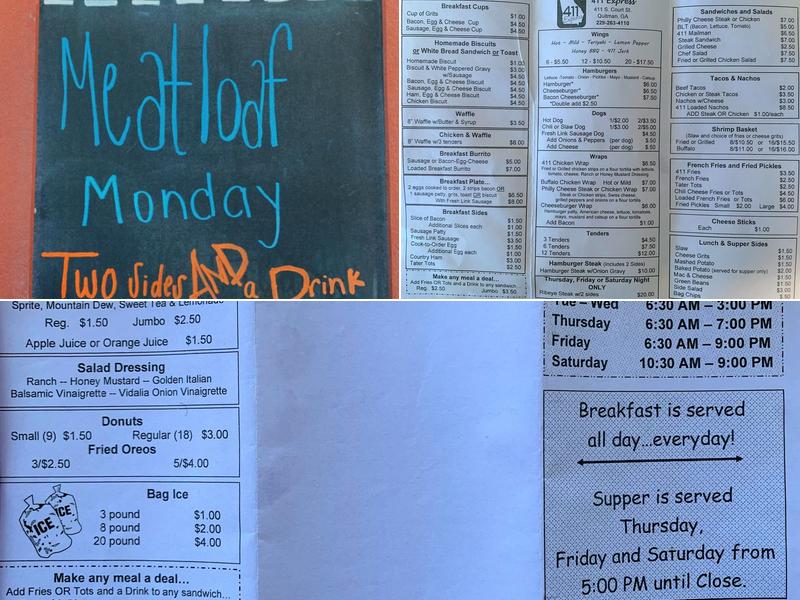 Meatloaf
Monday
Two sides AND a Drink
Breakfast Cups
Cup of Grits $1.00
Bacon, Egg & Cheese Cup $4.50
Sausage, Egg & Cheese Cup $4.50
Homemade Biscuits
or White Bread Sandwich or Toast
Homemade Biscuit $1.00
Biscuit & White Peppered Gravy $3.00
w/Sausage $4.50
Bacon, Egg & Cheese Biscuit $4.50
Sausage, Egg & Cheese Biscuit $4.50
Ham, Egg & Cheese Biscuit $4.50
Chicken Biscuit $4.50
Waffle
8" Waffle w/Butter & Syrup $3.50
Chicken & Waffle
8" Waffle w/3 tenders $8.00
Breakfast Burrito
Sausage or Bacon-Egg-Cheese $5.00
Loaded Breakfast Burrito $7.00
Breakfast Plate...
2 eggs cooked to order, 2 strips bacon OR
1 sausage patty, grits, toast OR biscuit $6.50
With Fresh Link Sausage $8.00
Breakfast Sides
Slice of Bacon $1.50
Additional Slices each $1.00
Sausage Patty $1.50
Fresh Link Sausage $3.50
Cook-to-Order Egg $1.50
Additional Egg each $1.00
Country Ham $3.00
Tater Tots $2.50
Make any meal a deal...
Add Fries OR Tots and a Drink to any sandwich...
Reg. $2.50 Jumbo $3.50
411
411 Express
411 S. Court St.
Quitman, GA
229-263-4110
Wings
Hot - Mild - Teriyaki - Lemon Pepper
Honey BBQ - 411 Jerk
6 - $5.50 12 - $10.50 20 - $17.50
Hamburgers
Lettuce - Tomato - Onion - Pickles - Mayo - Mustard - Catsup
Hamburger* $6.00
Cheeseburger* $6.50
Bacon Cheeseburger* $7.50
*Double add $2.50
Dogs
Hot Dog 1/$2.00 2/$3.50
Chili or Slaw Dog 1/$3.00 2/$5.00
Fresh Link Sausage Dog $4.50
Add Onions & Peppers (per dog) $.50
Add Cheese (per dog) $.50
Wraps
411 Chicken Wrap $6.50
Fried or Grilled chicken strips on a flour tortilla with lettuce,
tomato, cheese, Ranch or Honey Mustard Dressing
Buffalo Chicken Wrap Hot or Mild $7.00
Philly Cheese Steak or Chicken Wrap $7.00
Steak or Chicken strips, Swiss cheese,
grilled peppers and onions on a flour tortilla
Cheeseburger Wrap $6.00
Hamburger patty, American cheese, lettuce, tomatoes,
mayo, mustard and catsup on a flour tortilla
Add Bacon $1.00
Tenders
3 Tenders $4.50
6 Tenders $7.50
12 Tenders $12.00
Hamburger Steak (includes 2 Sides)
Hamburger Steak w/Onion Gravy $10.00
Thursday, Friday or Saturday Night
ONLY
Ribeye Steak w/2 sides $20.00
Sandwiches and Salads
Philly Cheese Steak or Chicken $7.00
BLT (Bacon, Lettuce, Tomato) $5.00
411 Mailman $6.50
Steak Sandwich $7.00
Grilled Cheese $2.50
Chef Salad $7.50
Fried or Grilled Chicken Salad $7.50
Tacos & Nachos
Beef Tacos $2.00
Chicken or Steak Tacos $3.50
Nachos w/Cheese $3.00
411 Loaded Nachos $8.50
ADD Steak OR Chicken $1.00/each
Shrimp Basket
(Slaw and choice of fries or cheese grits)
Fried or Grilled 8/$10.50 or 16/$15.50
Buffalo 8/$11.00 or 16/$16.00
French Fries and Fried Pickles
411 Fries $3.50
French Fries $2.50
Tater Tots $2.50
Chili Cheese Fries or Tots $4.50
Loaded French Fries or Tots $6.00
Fried Pickles Small $2.00 Large $4.00
Cheese Sticks
Each $1.00
Lunch & Supper Sides
Slaw $1.50
Cheese Grits $1.50
Mashed Potato $1.50
Baked Potato (served for supper only) $2.00
Mac & Cheese $1.50
Green Beans $1.50
Side Salad $3.00
Bag Chips
Sprite, Mountain Dew, Sweet Tea & Lemonade
Reg. $1.50 Jumbo $2.50
Apple Juice or Orange Juice $1.50
Salad Dressing
Ranch -- Honey Mustard -- Golden Italian
Balsamic Vinaigrette -- Vidalia Onion Vinaigrette
Donuts
Small (9) $1.50 Regular (18) $3.00
Fried Oreos
3/$2.50 5/$4.00
Bag Ice
ICE ICE
3 pound $1.00
8 pound $2.00
20 pound $4.00
Make any meal a deal...
Add Fries OR Tots and a Drink to any sandwich...
Tue – Wed 6:30 AM – 3:00 PM
Thursday 6:30 AM – 7:00 PM
Friday 6:30 AM – 9:00 PM
Saturday 10:30 AM – 9:00 PM
Breakfast is served
all day...everyday!
Supper is served
Thursday,
Friday and Saturday from
5:00 PM until Close.